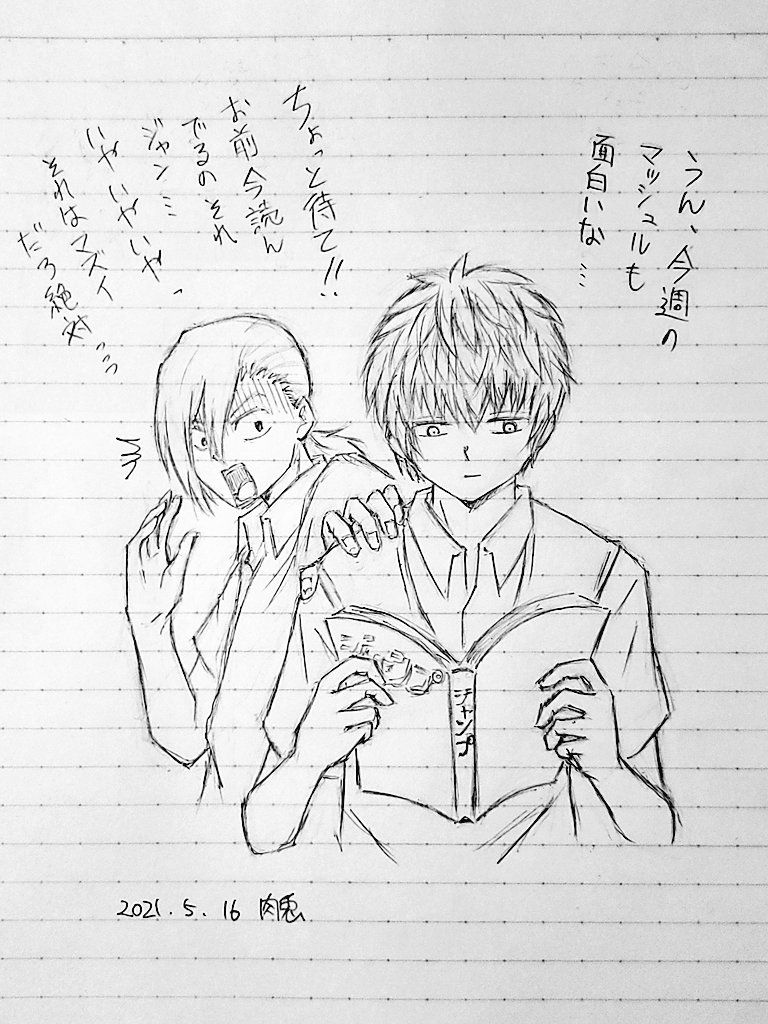 うん、今週の
マッシュルも
面白いな…
ちょっと待て!!
お前今読ん
でるのそれ
ジャン…
いやいやいや、
それはマズイ
だろ絶対……
チャンプ
2021.5.16 肉兎